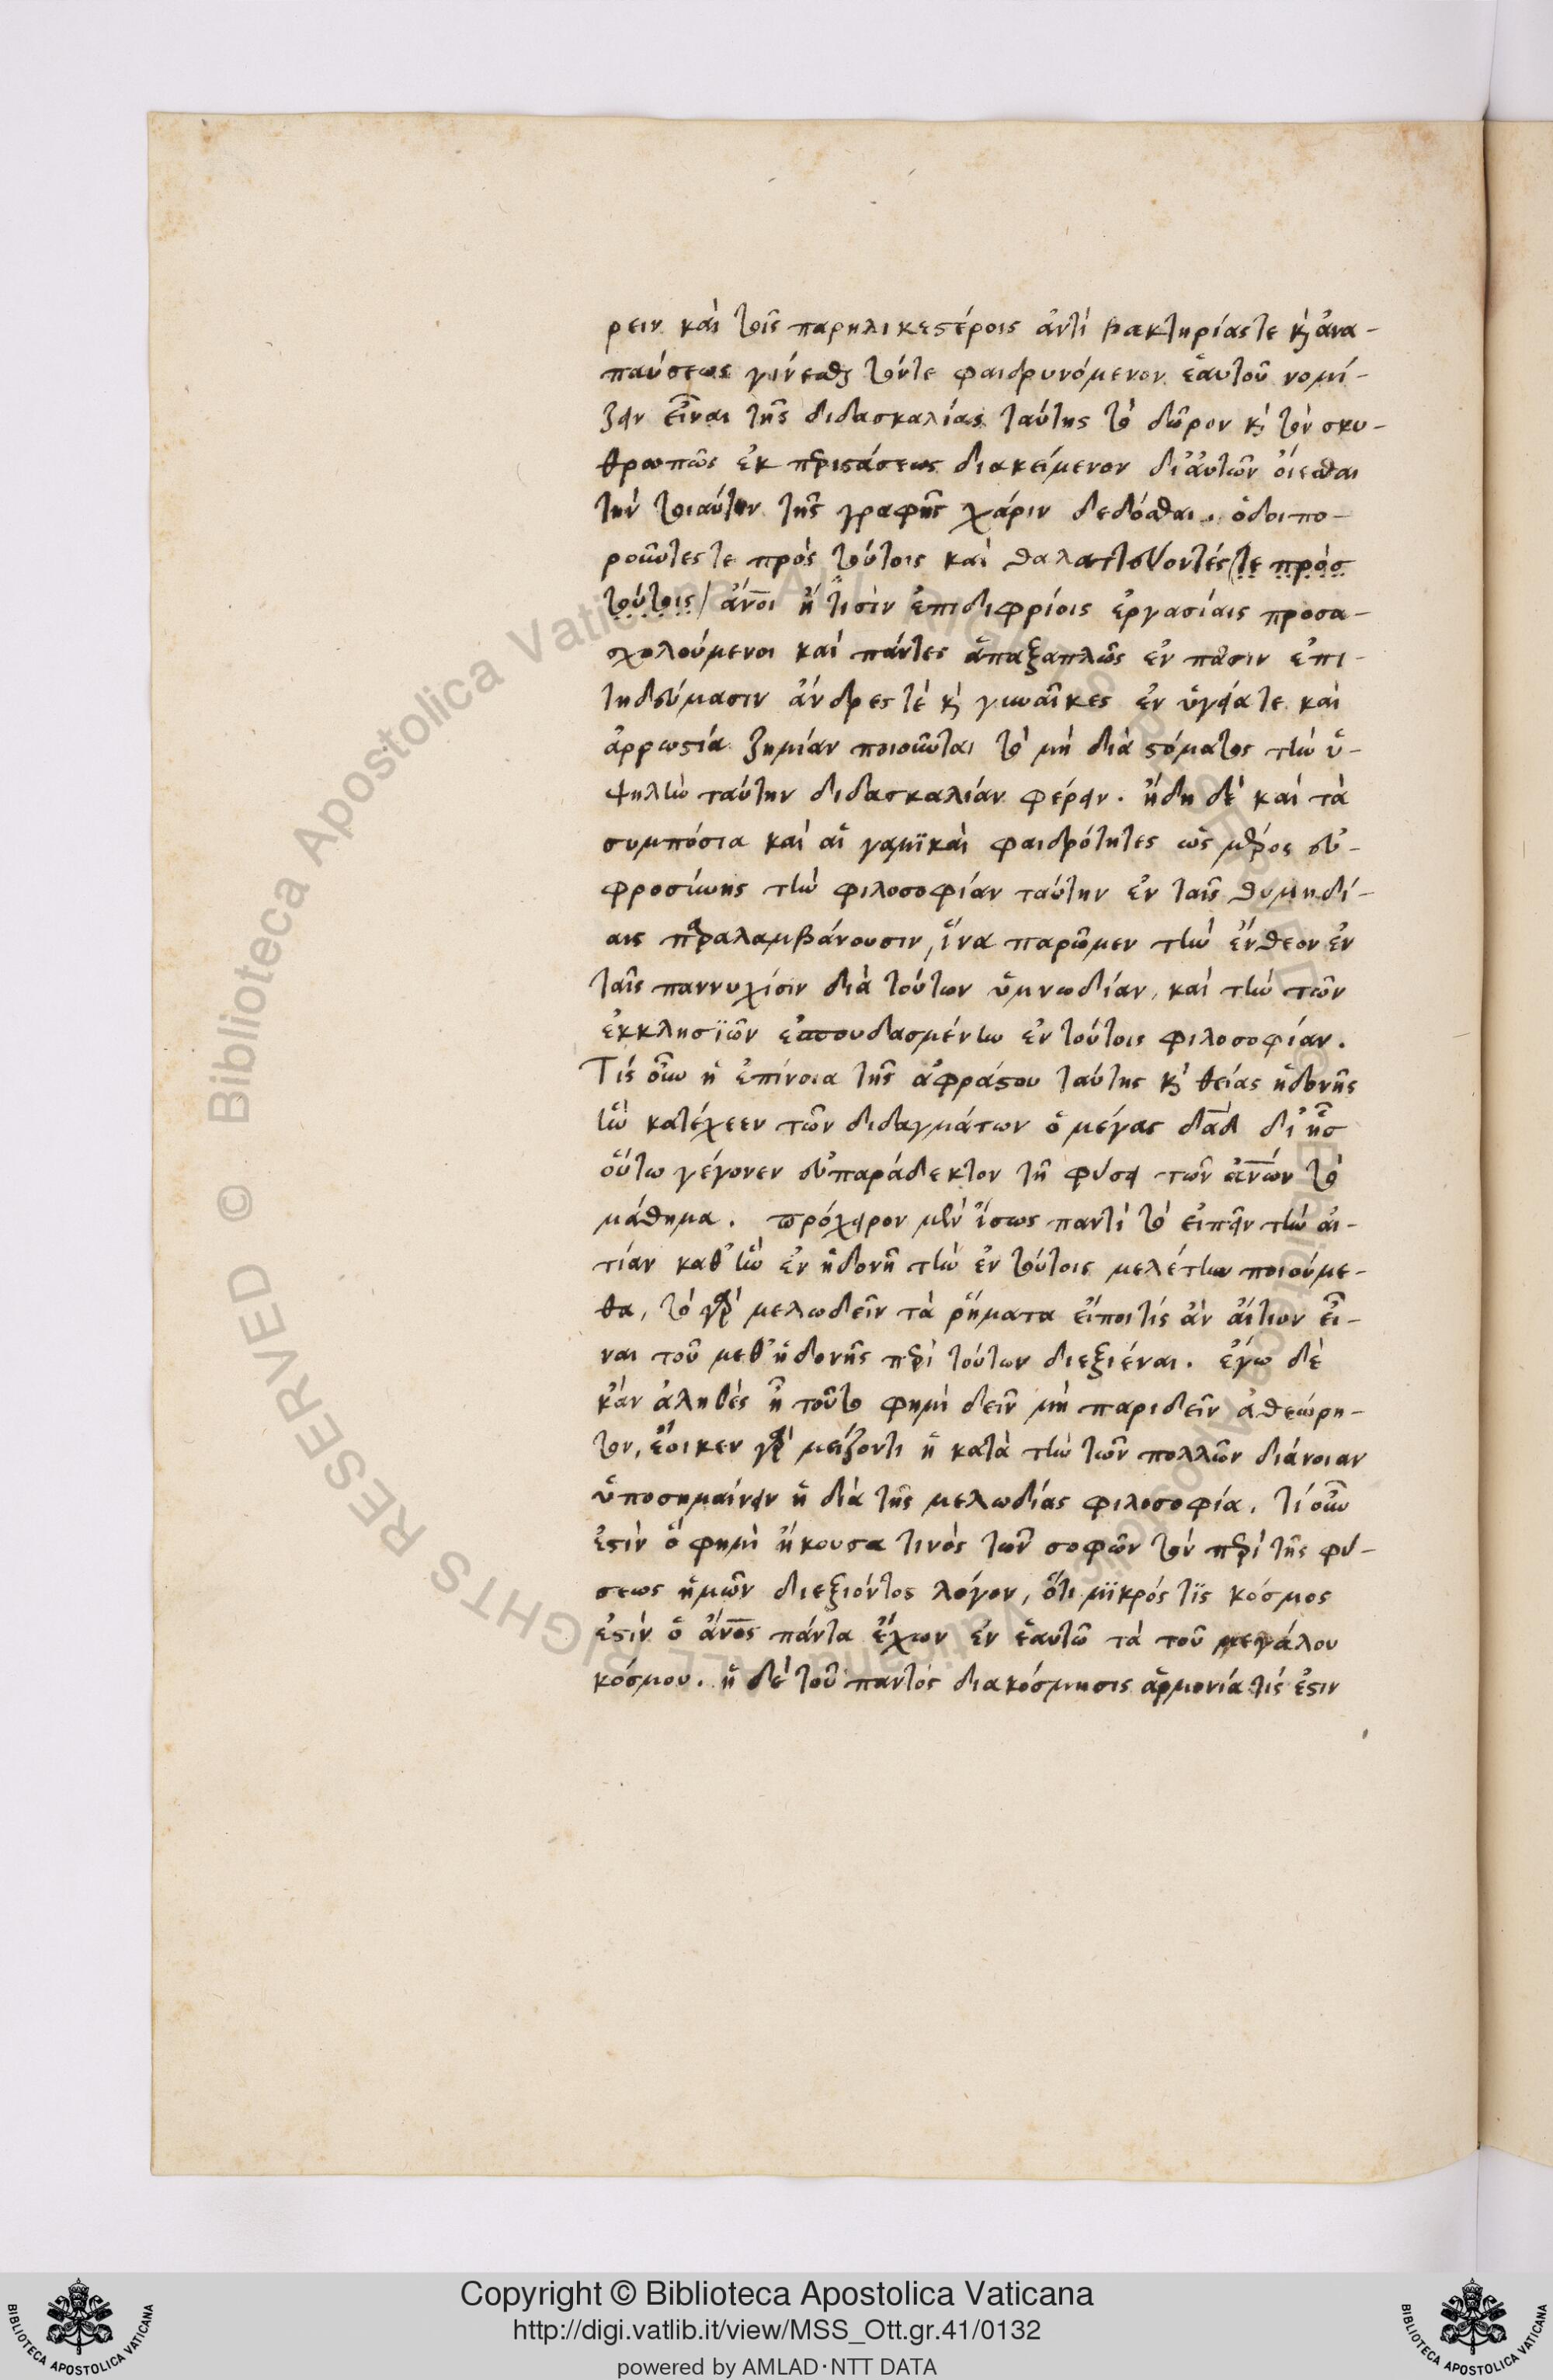 ρειν καὶ τοῖς παρηλικεστέροις ἀντὶ βακτηρίας τε κ ἀνα-
παύσεως γίνεσθαι τόντε φαιδρυνόμενον ἑαυτοῦ νομί-
ζειν εἶναι τῆς διδασκαλίας ταύτης τὸ δῶρον κ τὸν σκυ-
θρωπῶς ἐκ περιστάσεως διακείμενον δι' αὐτῶν οἴεσθαι
τὴν τοιαύτην τῆς γραφῆς χάριν δεδόσθαι. ὁδοιπο-
ροῦντες τε πρὸς τούτοις καὶ θαλαττεύοντές τε πρὸσ
τούτοις ἄνοι ἢ τισὶν ἐπιδιφρίοις ἐργασίαις προσα-
σχολούμενοι καὶ πάντες ἁπαξαπλῶς ἐν πᾶσιν ἐπι-
τηδεύμασιν ἄνδρες τὲ κ γυναῖκες ἐν ὑγεία τε καὶ
ἀρρωστία ζημίαν ποιοῦνται τὸ μὴ διὰ στόματος τὴν ὑ-
ψηλὴν ταύτην διδασκαλίαν φέρειν. ἤδη δὲ καὶ τὰ
συμπόσια καὶ αἱ γαμϊκαὶ φαιδρότητες ὡς μέρος εὐ-
φροσύνης τὴν φιλοσοφίαν ταύτην ἐν ταῖς θυμηδί-
αις παραλαμβάνουσιν, ἵνα παρῶμεν τὴν ἔνθεον ἐν
ταῖς παννυχίσιν διὰ τούτων ὑμνωδίαν, καὶ τὴν τῶν
ἐκκλησϊῶν ἐσπουδασμένην ἐν τούτοις φιλοσοφίαν.
Τίς οὖν ἡ ἐπίνοια τῆς ἀφράστου ταύτης κ θείας ἡδονῆς
ἣν κατέχεεν τῶν διδαγμάτων ὁ μέγας δαδ δι' ἧσ
οὕτω γέγονεν εὐπαράδεκτον τῆ φύσει τῶν ανων τὸ
μάθημα. πρόχειρον μὲν ἴσως παντὶ τὸ εἰπεῖν τὴν αἰ-
τίαν καθ' ἣν ἐν ἡδονῆ τὴν ἐν τούτοις μελέτην ποιούμε-
θα, τὸ γὰρ μελωδεῖν τὰ ῥήματα εἴποι τίς ἂν αἴτιον εἶ-
ναι τοῦ μεθ' ἡδονῆς περὶ τούτων διεξιέναι. ἐγω δὲ
κἂν ἀληθὲς ἦ τοῦτο φημὶ δεῖν μὴ παριδεῖν ἀθεώρη-
τον, ἔοικεν γὰρ μείζοντι ἢ κατὰ τὴν τῶν πολλῶν διάνοιαν
ὑποσημαίνειν ἡ διὰ τῆς μελωδίας φιλοσοφία. τί οὖν
ἐστὶν ὅ φημὶ ἤκουσα τινὸς τῶν σοφῶν τὸν περὶ τῆς φύ-
σεως ἡμῶν διεξιόντος λόγον, ὅτι μϊκρός τϊς κόσμος
ἐστὶν ὁ ἄνος πάντα ἔχων ἐν ἑαυτῶ τὰ τοῦ μεγάλου
κόσμου. ἡ δὲ τοῦ παντὸς διακόσμησις ἁρμονία τίς ἐστιν
Copyright © Biblioteca Apostolica Vaticana
http://digi.vatlib.it/view/MSS_Ott.gr.41/0132
powered by AMLAD·NTT DATA